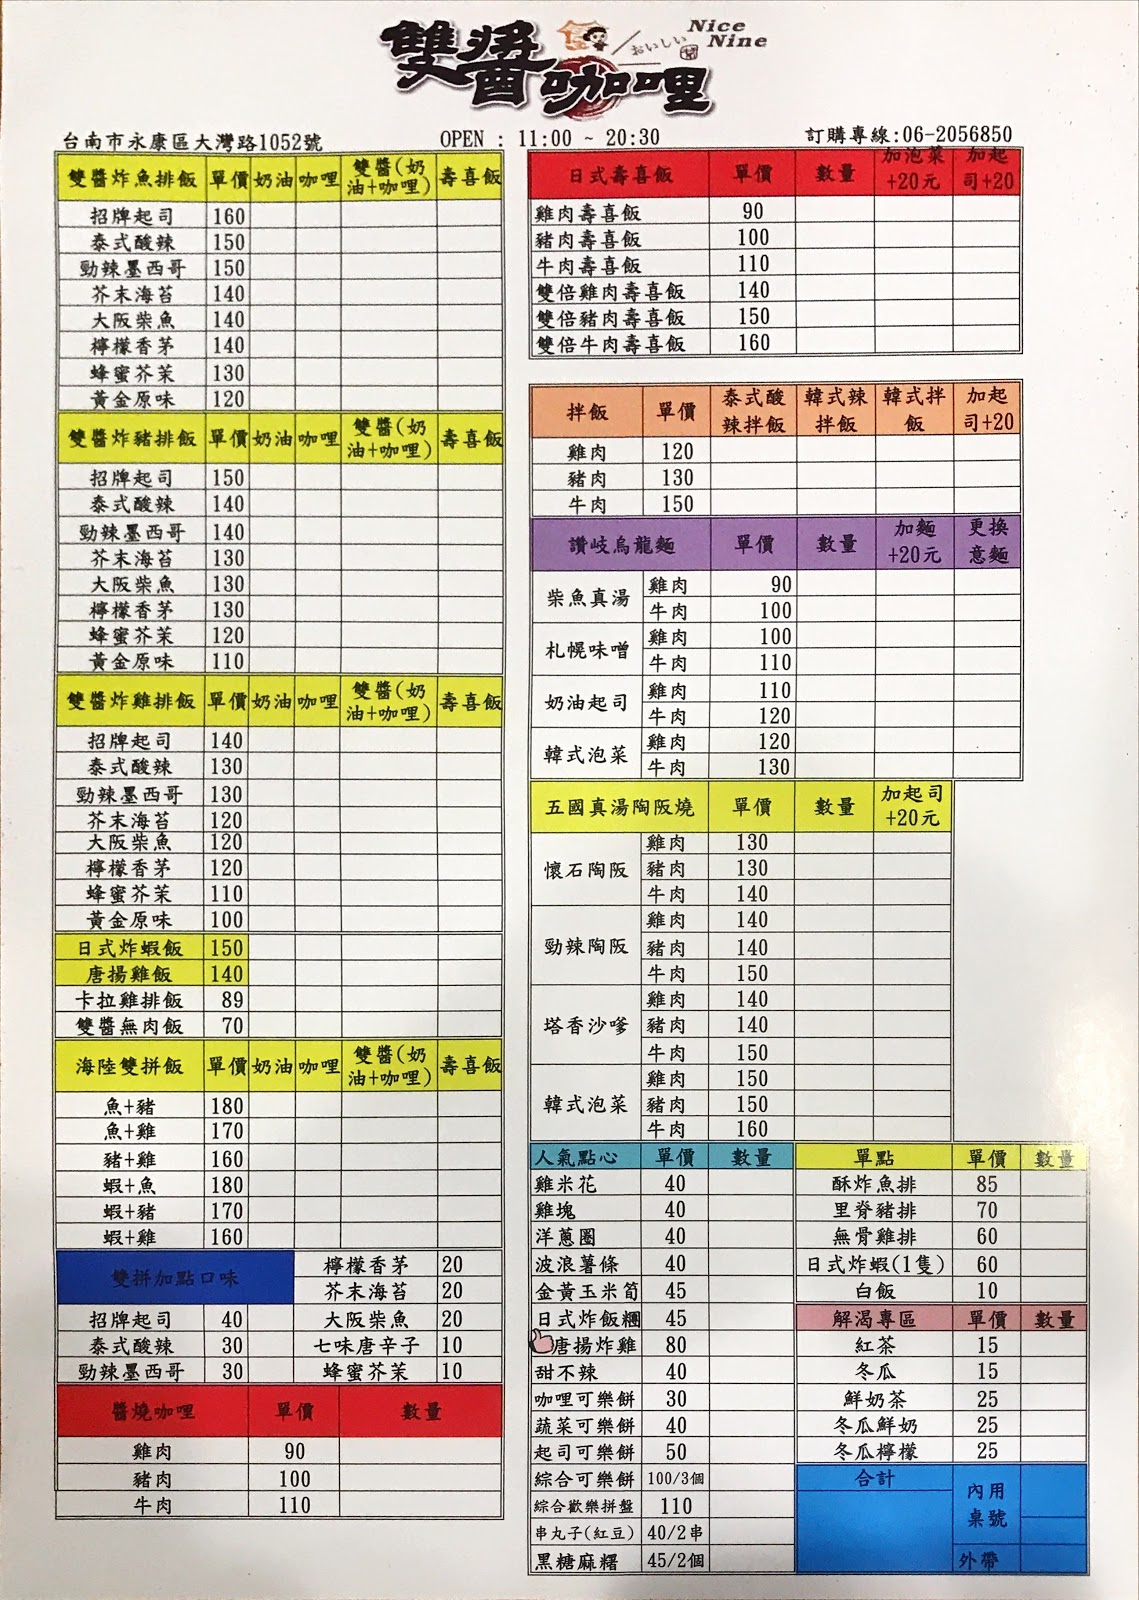 雙醬咖哩
おいしい
Nice
Nine
台南市永康區大灣路1052號
OPEN : 11:00 ~ 20:30
訂購專線:06-2056850
雙醬炸魚排飯 單價 奶油 咖哩 雙醬(奶油+咖哩) 壽喜飯
招牌起司 160
泰式酸辣 150
勁辣墨西哥 150
芥末海苔 140
大阪柴魚 140
檸檬香茅 140
蜂蜜芥茉 130
黃金原味 120
雙醬炸豬排飯 單價 奶油 咖哩 雙醬(奶油+咖哩) 壽喜飯
招牌起司 150
泰式酸辣 140
勁辣墨西哥 140
芥末海苔 130
大阪柴魚 130
檸檬香茅 130
蜂蜜芥茉 120
黃金原味 110
雙醬炸雞排飯 單價 奶油 咖哩 雙醬(奶油+咖哩) 壽喜飯
招牌起司 140
泰式酸辣 130
勁辣墨西哥 130
芥末海苔 120
大阪柴魚 120
檸檬香茅 120
蜂蜜芥茉 110
黃金原味 100
日式炸蝦飯 150
唐揚雞飯 140
卡拉雞排飯 89
雙醬無肉飯 70
海陸雙拼飯 單價 奶油 咖哩 雙醬(奶油+咖哩) 壽喜飯
魚+豬 180
魚+雞 170
豬+雞 160
蝦+魚 180
蝦+豬 170
蝦+雞 160
雙拼加點口味
檸檬香茅 20
芥末海苔 20
招牌起司 40 大阪柴魚 20
泰式酸辣 30 七味唐辛子 10
勁辣墨西哥 30 蜂蜜芥茉 10
醬燒咖哩 單價 數量
雞肉 90
豬肉 100
牛肉 110
日式壽喜飯 單價 數量 加泡菜+20元 加起司+20
雞肉壽喜飯 90
豬肉壽喜飯 100
牛肉壽喜飯 110
雙倍雞肉壽喜飯 140
雙倍豬肉壽喜飯 150
雙倍牛肉壽喜飯 160
拌飯 單價 泰式酸辣拌飯 韓式辣拌飯 韓式拌飯 加起司+20
雞肉 120
豬肉 130
牛肉 150
讚岐烏龍麵 單價 數量 加麵+20元 更換意麵
柴魚真湯 雞肉 90
牛肉 100
札幌味噌 雞肉 100
牛肉 110
奶油起司 雞肉 110
牛肉 120
韓式泡菜 雞肉 120
牛肉 130
五國真湯陶阪燒 單價 數量 加起司+20元
懷石陶阪 雞肉 130
豬肉 130
牛肉 140
勁辣陶阪 雞肉 140
豬肉 140
牛肉 150
塔香沙嗲 雞肉 140
豬肉 140
牛肉 150
韓式泡菜 雞肉 150
豬肉 150
牛肉 160
人氣點心 單價 數量
雞米花 40
雞塊 40
洋蔥圈 40
波浪薯條 40
金黃玉米筍 45
日式炸飯糰 45
唐揚炸雞 80
甜不辣 40
咖哩可樂餅 30
蔬菜可樂餅 40
起司可樂餅 50
綜合可樂餅 100/3個
綜合歡樂拼盤 110
串丸子(紅豆) 40/2串
黑糖麻糬 45/2個
單點 單價 數量
酥炸魚排 85
里脊豬排 70
無骨雞排 60
日式炸蝦(1隻) 60
白飯 10
解渴專區 單價 數量
紅茶 15
冬瓜 15
鮮奶茶 25
冬瓜鮮奶 25
冬瓜檸檬 25
合計
內用
桌號
外帶